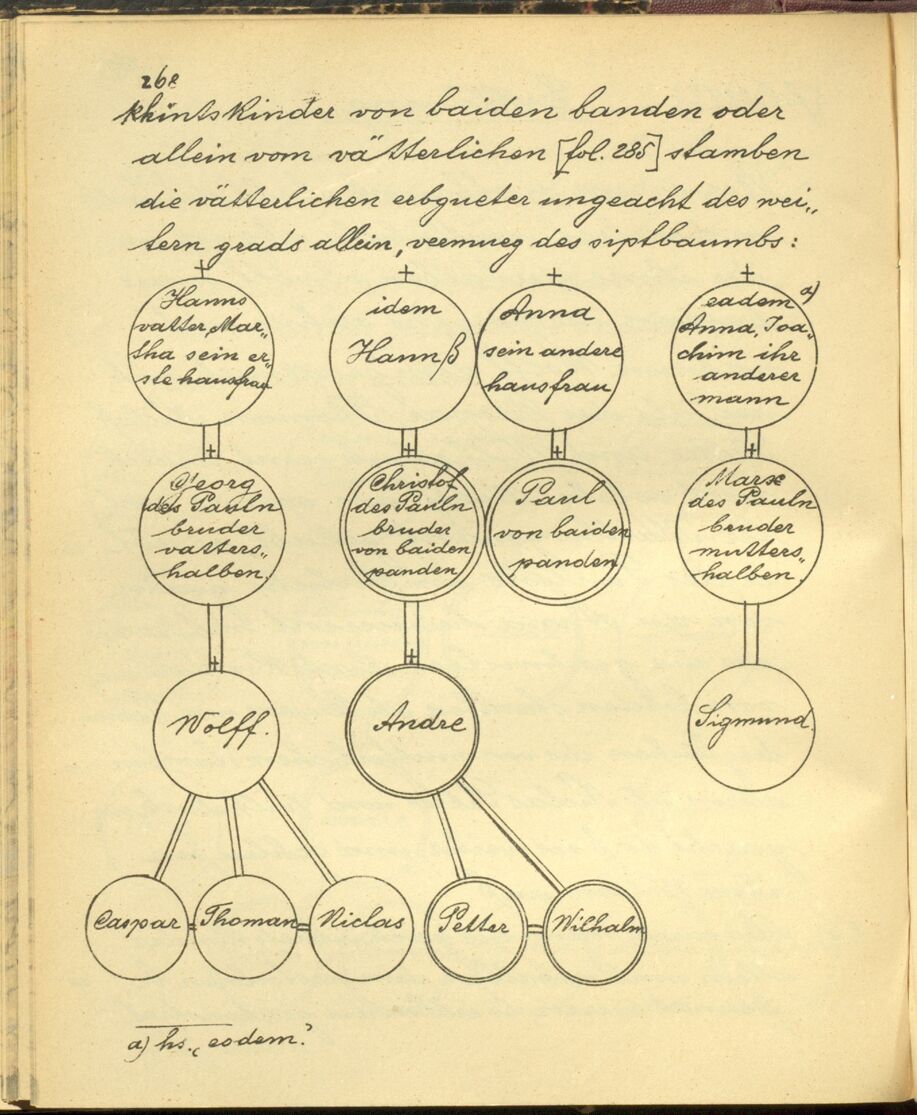 268
khintskinder von baiden banden oder
allein vom vätterlichen [fol. 285] stamben
die vätterlichen erbgueter ungeacht des wei„
tern grads allein, vermueg des siptbaumbs:
Hanns
vatter, Mar„
tha sein er„
ste hausfrau
idem
Hannß
Anna
sein andere
hausfrau
eadem a)
Anna, Joa„
chim ihr
anderer
mann
Georg
des Pauln
bruder
vatters„
halben.
Christof
des Pauln
bruder
von baiden
panden
Paul
von baiden
panden
Marx
des Pauln
bruder
mutters„
halben.
Wolff.
Andre
Sigmund.
Caspar
Thoman
Niclas
Petter
Wilhalm
a) hs. ‚eodem‘.